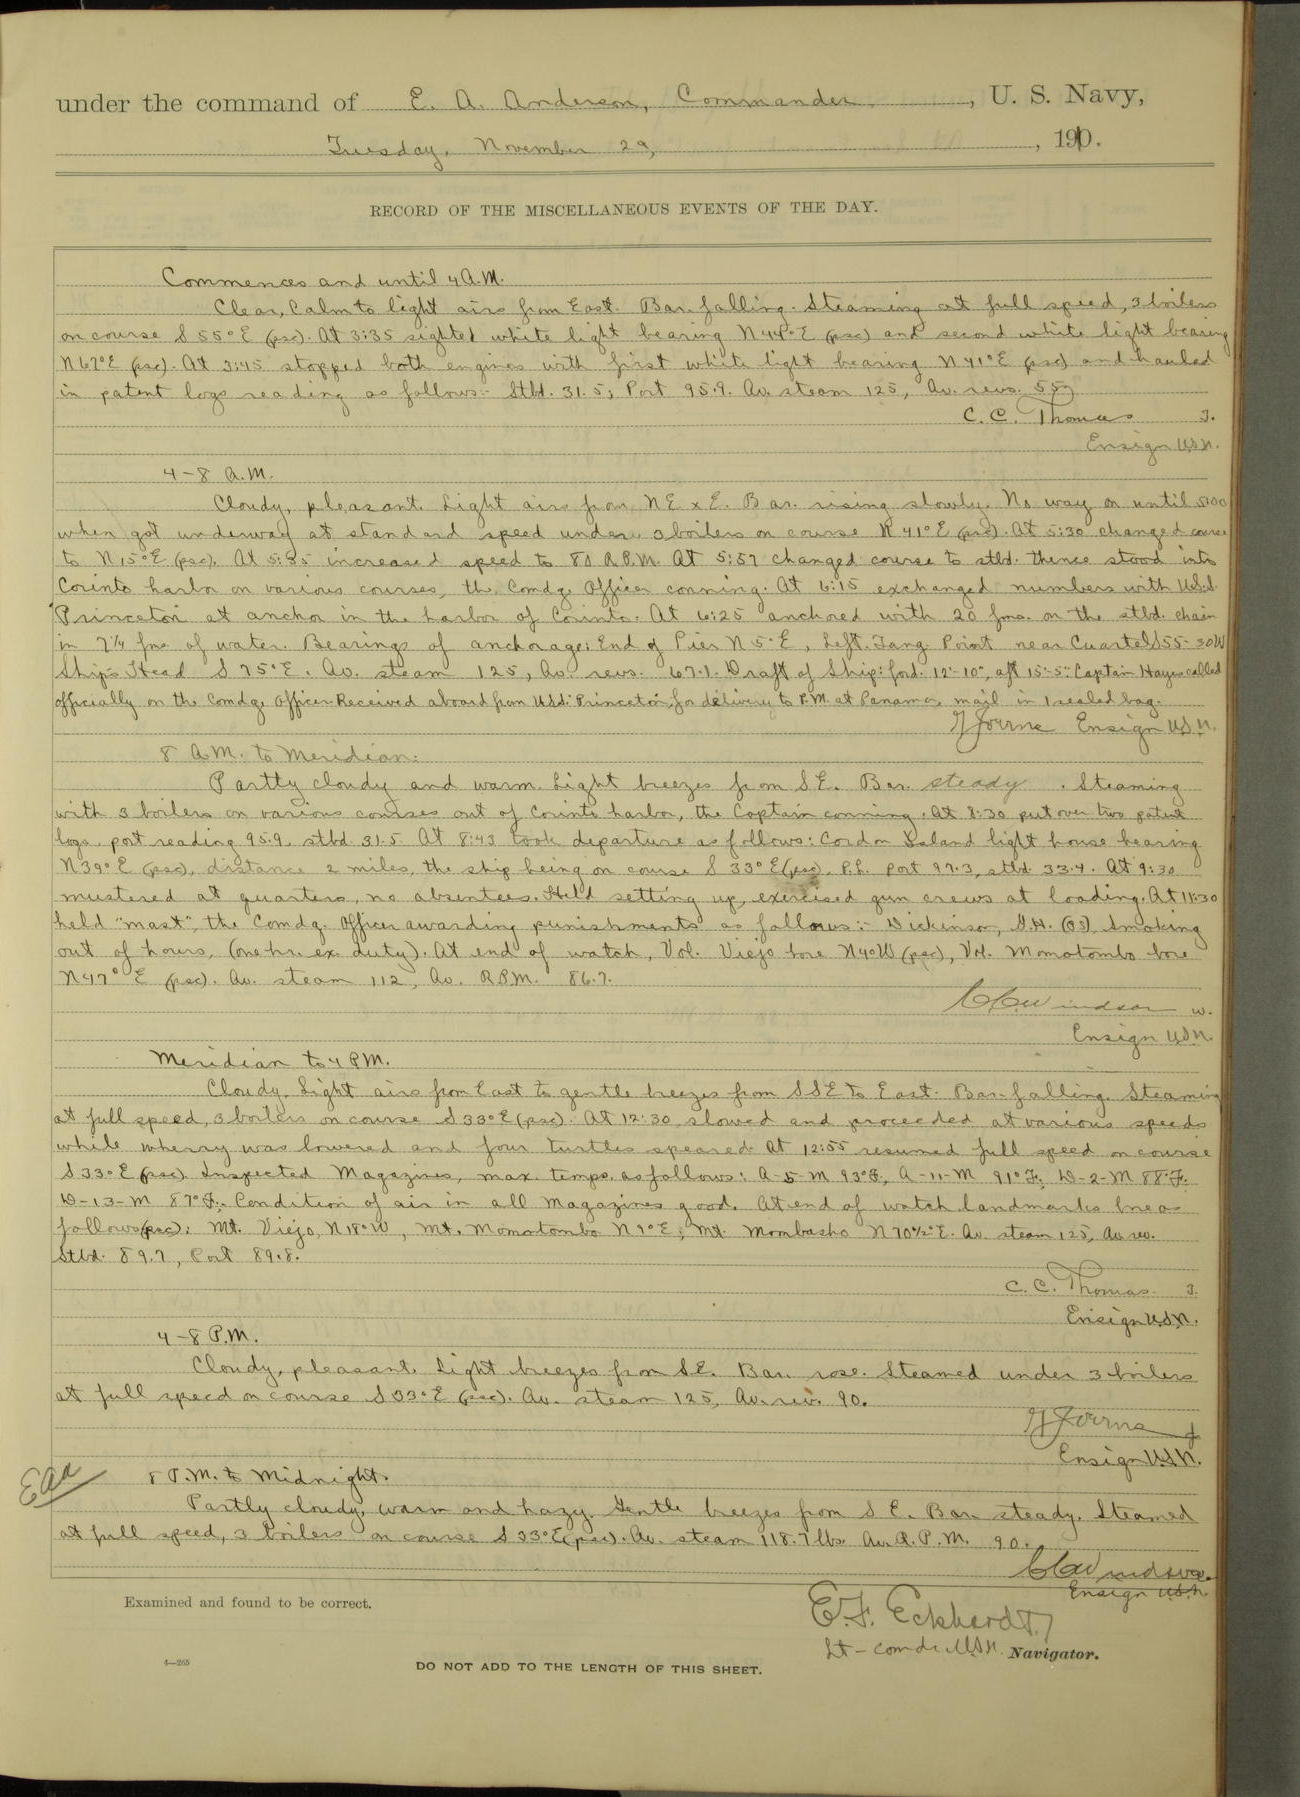 under the command of E. A. Anderson, Commander, U. S. Navy,
Tuesday, November 29, 1910.
RECORD OF THE MISCELLANEOUS EVENTS OF THE DAY.
Commences and until 4 A.M.
Clear, Calm to light airs from East. Bar. falling. Steaming at full speed, 3 boilers
on course S 55° E (psc). At 3:35 sighted white light bearing N 44° E (psc) and second white light bearing
N 67° E (psc). At 3:45 stopped both engines with first white light bearing N 41° E (psc) and hauled
in patent logs reading as follows:- Stbd. 31.5; Port 95.9. Av. steam 125, Av. revs. 55
C. C. Thomas
Ensign U.S.N.
4-8 A.M.
Cloudy, pleasant. Light airs from NE x E. Bar. rising slowly. No way on until 5:00
when got underway at standard speed under 3 boilers on course N 41° E (psc). At 5:30 changed course
to N 15° E (psc). At 5:35 increased speed to 80 R.P.M. At 5:57 changed course to stbd. thence stood into
Corinto harbor on various courses, the Comdg. Officer conning. At 6:15 exchanged numbers with U.S.S.
Princeton at anchor in the harbor of Corinto. At 6:25 anchored with 20 fms. on the stbd. chain
in 7 1/4 fms of water. Bearings of anchorage: End of Pier N 5° E, Left Tang. Point near Cuartel S 55-30 W
Ship's Head S 75° E. Av. steam 125, Av. revs. 67.1. Draft of Ship: ford. 12'-10", aft 15'-5". Captain Hayes called
officially on the Comdg. Officer. Received aboard from U.S.S. Princeton, for delivery to P.M. at Panama, mail in 1 sealed bag.
Ensign U.S.N.
8 A.M. to Meridian:
Partly cloudy and warm. Light breezes from S.E. Bar. steady. Steaming
with 3 boilers on various courses out of Corinto harbor, the Captain conning. At 8:30 put over two patent
logs, port reading 95.9, stbd. 31.5. At 8:43 took departure as follows: Cardon Island light house bearing
N 39° E (psc), distance 2 miles, the ship being on course S 33° E (psc), P.L. port 97.3, stbd 33.4. At 9:30
mustered at quarters, no absentees. Held setting up, exercised gun crews at loading. At 11:30
held "mast", the Comdg. Officer awarding punishments as follows:- Dickinson, G.H. (OS), Smoking
out of hours, (one hr. ex. duty). At end of watch, Vol. Viejo bore N 4° W (psc), Vol. Momotombo bore
N 47° E (psc). Av. steam 112, Av. R.P.M. 86.7.
C C Windsor w.
Ensign U.S.N.
Meridian to 4 P.M.
Cloudy. Light airs from East to gentle breezes from SSE to East. Bar. falling. Steaming
at full speed, 3 boilers on course S 33° E (psc). At 12:30 slowed and proceeded at various speeds
while wherry was lowered and four turtles speared. At 12:55 resumed full speed on course
S 33° E (psc). Inspected Magazines, max. temps. as follows: A-5-M 93° F., A-11-M 91° F.; D-2-M 88° F.
D-13-M 87° F.; Condition of air in all Magazines good. At end of watch landmarks bore as
follows (psc): Mt. Viejo, N 18° W, Mt. Momotombo N 9° E; Mt. Mombacho N 70 1/2° E. Av. steam 125, Av. rev.
Stbd. 89.7, Port 89.8.
C. C. Thomas
Ensign U.S.N.
4-8 P.M.
Cloudy, pleasant. Light breezes from S.E. Bar. rose. Steamed under 3 boilers
at full speed on course S 33° E (psc). Av. steam 125, Av. rev. 90.
Ensign U.S.N.
8 P.M. to Midnight.
Partly cloudy, warm and hazy. Gentle breezes from S E. Bar. steady. Steamed
at full speed, 3 boilers on course S 33° E (psc). Av. steam 118.7 lbs. Av. R.P.M. 90.
C C Windsor
Ensign U.S.N.
EAA
Examined and found to be correct.
E. F. Eckhardt
Lt-Comdr U.S.N. Navigator.
4—265
DO NOT ADD TO THE LENGTH OF THIS SHEET.